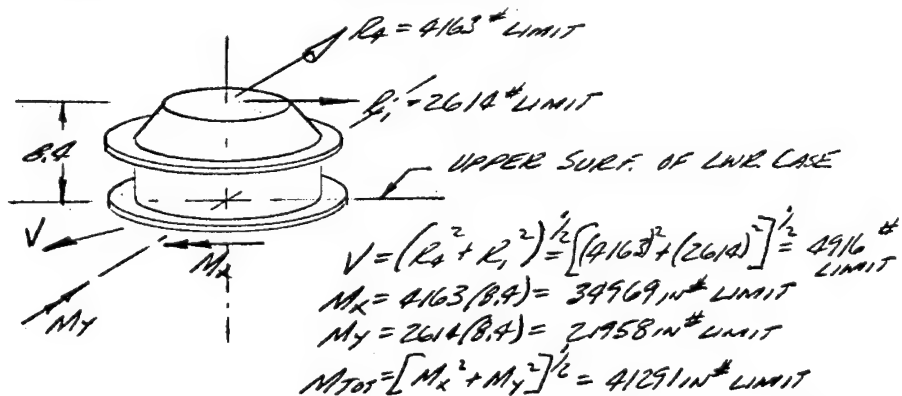 R₄ = 4163 # LIMIT
R₁' = 2614 # LIMIT
8.4
UPPER SURF. OF LWR. CASE
V
Mx
My
V = (R₄² + R₁²)^½ = [(4163)² + (2614)²]^½ = 4916 # LIMIT
Mx = 4163(8.4) = 34969 IN# LIMIT
My = 2614(8.4) = 21958 IN# LIMIT
MTOT = [Mx² + My²]^½ = 41291 IN# LIMIT